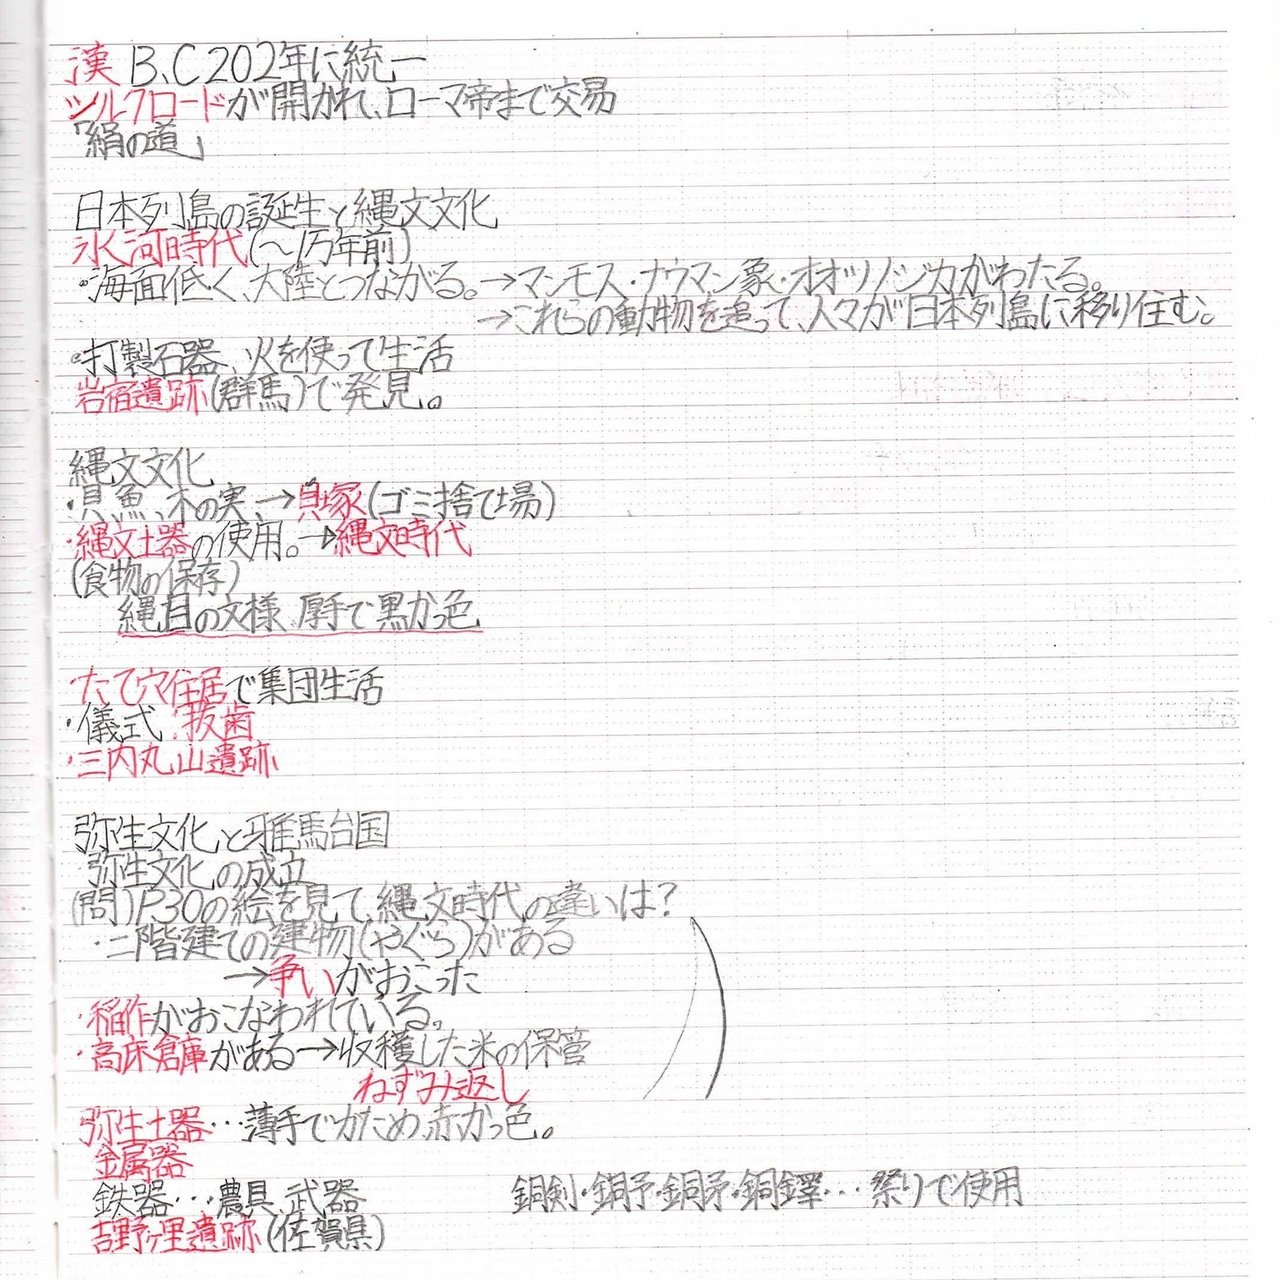 漢 B、C202年に統一
シルクロードが開かれ、ローマ帝まで交易
「絹の道」
日本列島の誕生と縄文文化
氷河時代(〜1万年前)
・海面低く、大陸とつながる。→マンモス・ナウマン象・オオツノジカがわたる。
→これらの動物を追って、人々が日本列島に移り住む。
・打製石器、火を使って生活
岩宿遺跡(群馬)で発見。
縄文文化
・貝、魚、木の実、→貝塚(ゴミ捨て場)
・縄文土器の使用。→縄文時代
(食物の保存)
縄目の文様、厚手で黒かっ色
・たて穴住居で集団生活
・儀式:抜歯
・三内丸山遺跡
弥生文化と邪馬台国
弥生文化の成立
(問)P30の絵を見て、縄文時代の違いは?
・二階建ての建物(やぐら)がある
→争いがおこった
・稲作がおこなわれている。
・高床倉庫がある→収穫した米の保管
ねずみ返し
弥生土器…薄手でかため、赤かっ色。
金属器
鉄器…農具、武器 銅剣・銅予・銅矛・銅鐸…祭りで使用
吉野ヶ里遺跡(佐賀県)